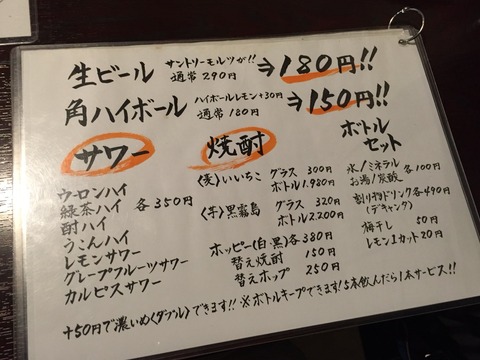 生ビール サントリーモルツが!! 通常290円 ⇒180円!!
角ハイボール ハイボールレモン+30円 通常180円 ⇒150円!!
サワー
ウーロンハイ
緑茶ハイ
酎ハイ
うこんハイ
レモンサワー
グレープフルーツサワー
カルピスサワー
各350円
焼酎
〈麦〉いいちこ グラス 300円
ボトル1.980円
〈芋〉黒霧島 グラス 320円
ボトル2.200円
ホッピー(白・黒)各380円
替え焼酎 150円
替えホップ 250円
ボトルセット
氷/ミネラル
お湯/炭酸 各100円
割り物ドリンク各490円
(デキャンタ)
梅干し 50円
レモン1カット20円
+50円で濃いめ〈ダブル〉できます!! ※ボトルキープできます!5本飲んだら1本サービス!!